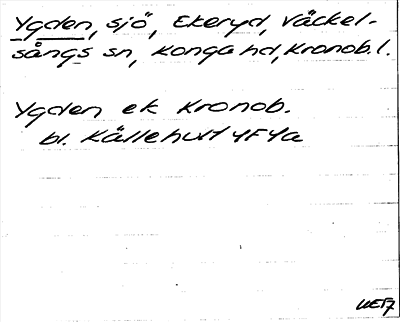 Ygden, sjö, Ekeryd, Väckel-
sångs sn, Konga hd, Kronob. l.
Ygden ek Kronob.
bl. Källehult 4F4a